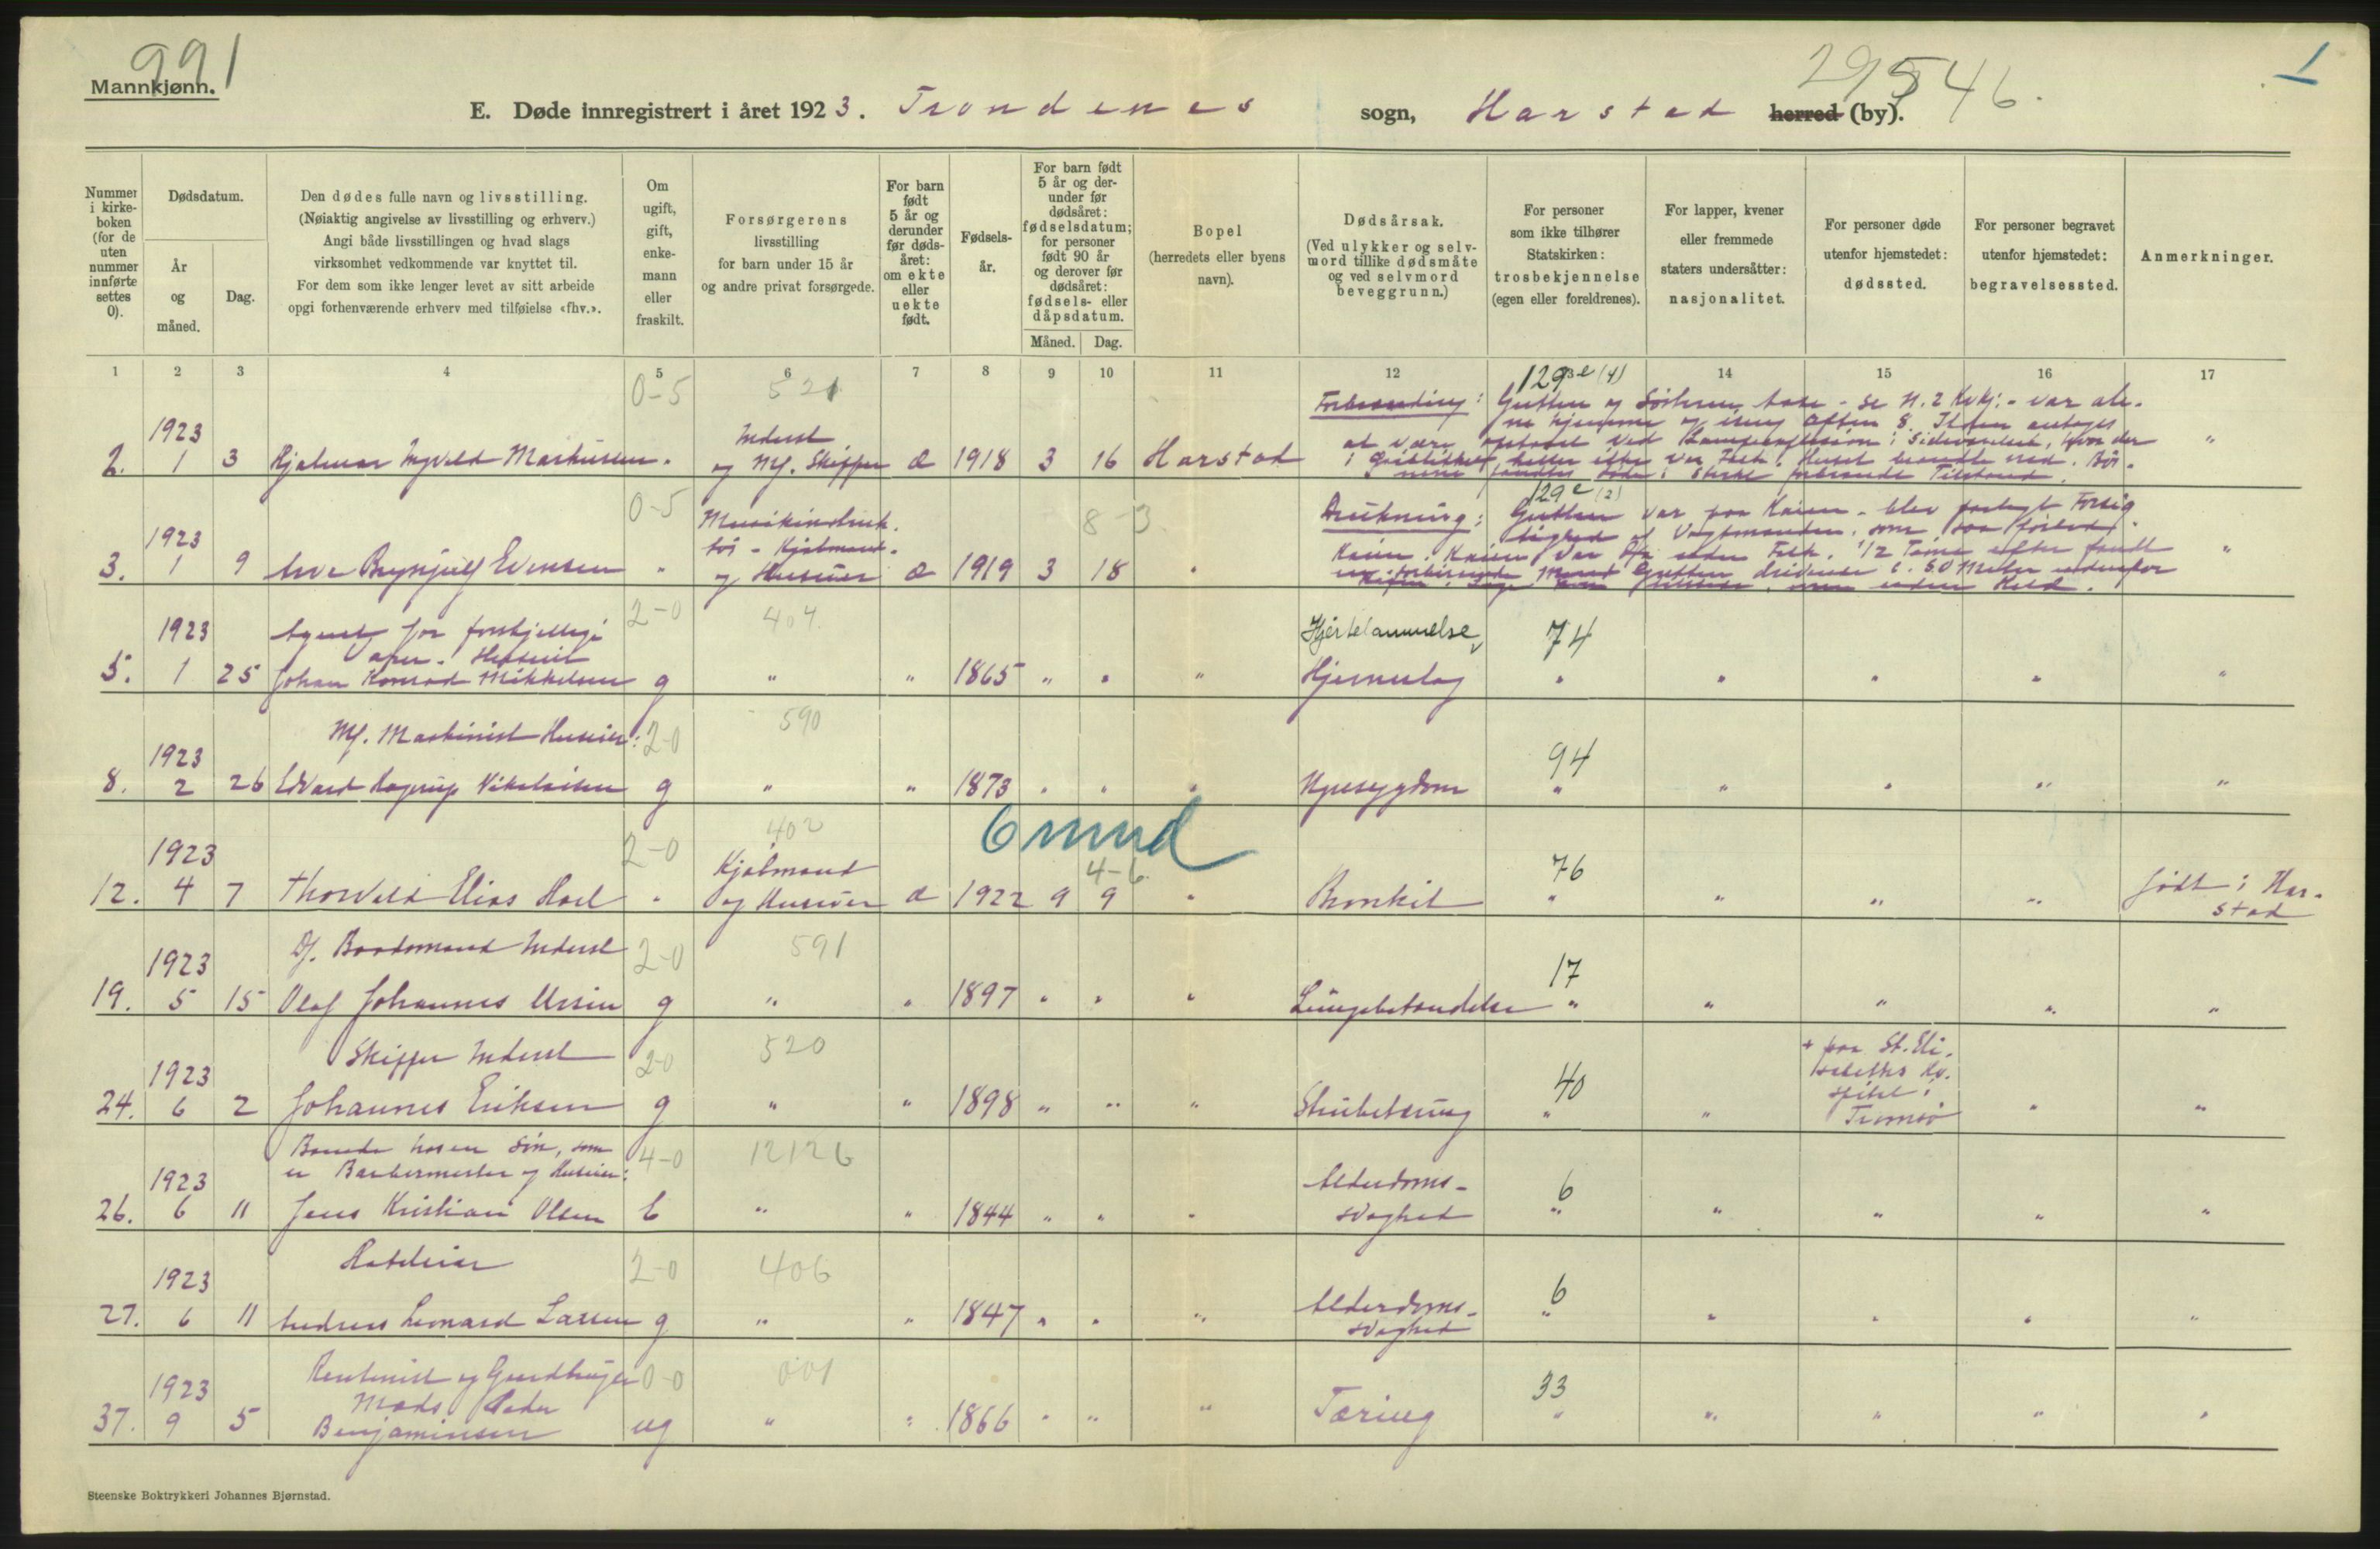 991
29546.
1
Mannkjønn.
E. Døde innregistrert i året 1923. Trondenes sogn, Harstad herred (by).
Nummer i kirkeboken (for de uten nummer innførte settes 0).
Dødsdatum.
År og måned.
Dag.
Den dødes fulle navn og livsstilling.
(Nøiaktig angivelse av livsstilling og erhverv.)
Angi både livsstillingen og hvad slags
virksomhet vedkommende var knyttet til.
For dem som ikke lenger levet av sitt arbeide
opgi forhenværende erhverv med tilføielse «fhv.».
Om ugift, gift, enkemann eller fraskilt.
Forsørgerens
livsstilling
for barn under 15 år
og andre privat forsørgede.
For barn født 5 år og derunder før dødsåret: om ekte eller uekte født.
Fødselsår.
For barn født 5 år og derunder før dødsåret: fødselsdatum; for personer født 90 år og derover før dødsåret: fødsels- eller dåpsdatum.
Måned. Dag.
Bopel
(herredets eller byens navn).
Dødsårsak.
(Ved ulykker og selvmord tillike dødsmåte og ved selvmord beveggrunn.)
For personer
som ikke tilhører
Statskirken:
trosbekjennelse
(egen eller foreldrenes).
For lapper, kvener
eller fremmede
staters undersåtter:
nasjonalitet.
For personer døde
utenfor hjemstedet:
dødssted.
For personer begravet
utenfor hjemstedet:
begravelsessted.
Anmerkninger.
1 2 3 4 5 6 7 8 9 10 11 12 13 14 15 16 17
0-5 521 129e (4)
Forbrænding: Gutten og Søsteren - se N. 2 Kvkj: - var ale-
ne hjemme
at være opstaaet ved Lampeeksplosion i Sideværelset, hvor der
Huset brændte ned. Bør-
nene fandtes døde i sterkt forbrændt Tilstand.
1923
2. 1 3 Hjalmar Ingvald Markussen. Inderst og Mf. Skipper e 1918 3 16 Harstad "
0-5 8-3 129e (2)
Drukning: Gutten var paa Kaien - blev
Vagtmanden, som
Kaien. Kaien var uden Folk. 1/2 Time efter fandt
Gutten drivende c. 50 Meter udenfor
1923
3. 1 9 Arve Brynjulf Evensen " Kjøbmand og Huseier e 1919 3 18 " "
2-0 404. Hjertelammelse 74
1923 Agent for forskjellige
5. 1 25 Johan Konrad Mikkelsen g " " 1865 " " " Hjerneslag " " " " "
2-0 590 94
1923 Mf. Maskinist Huseier:
8. 2 26 Edvard Hagerup Nikolaisen g " " 1873 " " " Nyresygdom " " " " "
2-0 402 6 mnd 4-6. 76
1923
12. 4 7 Thorvald Elias Hoel " Kjøbmand og Huseier e 1922 9 9 " Bronkit " " " " født i Harstad
2-0 591 17
1923 Df. Baadsmand Inderst
19. 5 15 Olaf Johannes Ursin g " " 1897 " " " Lungebetændelse " " " " "
2-0 520 40
1923 Skipper Inderst
24. 6 2 Johannes Eriksen g " " 1898 " " " Strubetæring " " + paa St. Elisabeths Hospital i Tromsø " "
4-0 12126 6
1923 Boende hos en Søn, som
er Barbermester og Huseier:
26. 6 11 Jens Kristian Olsen e " " 1844 " " " Alderdomssvaghed " " " " "
2-0 406 6
1923 Hoteleier
27. 6 11 Andreas Leonard Larsen g " " 1847 " " " Alderdomssvaghed " " " " "
0-0 001 33
1923 Rentenist og Gaardbruger
Mads Peder
37. 9 5 Benjaminsen ug " " 1866 " " " Tæring " " " " "
Steenske Boktrykkeri Johannes Bjørnstad.